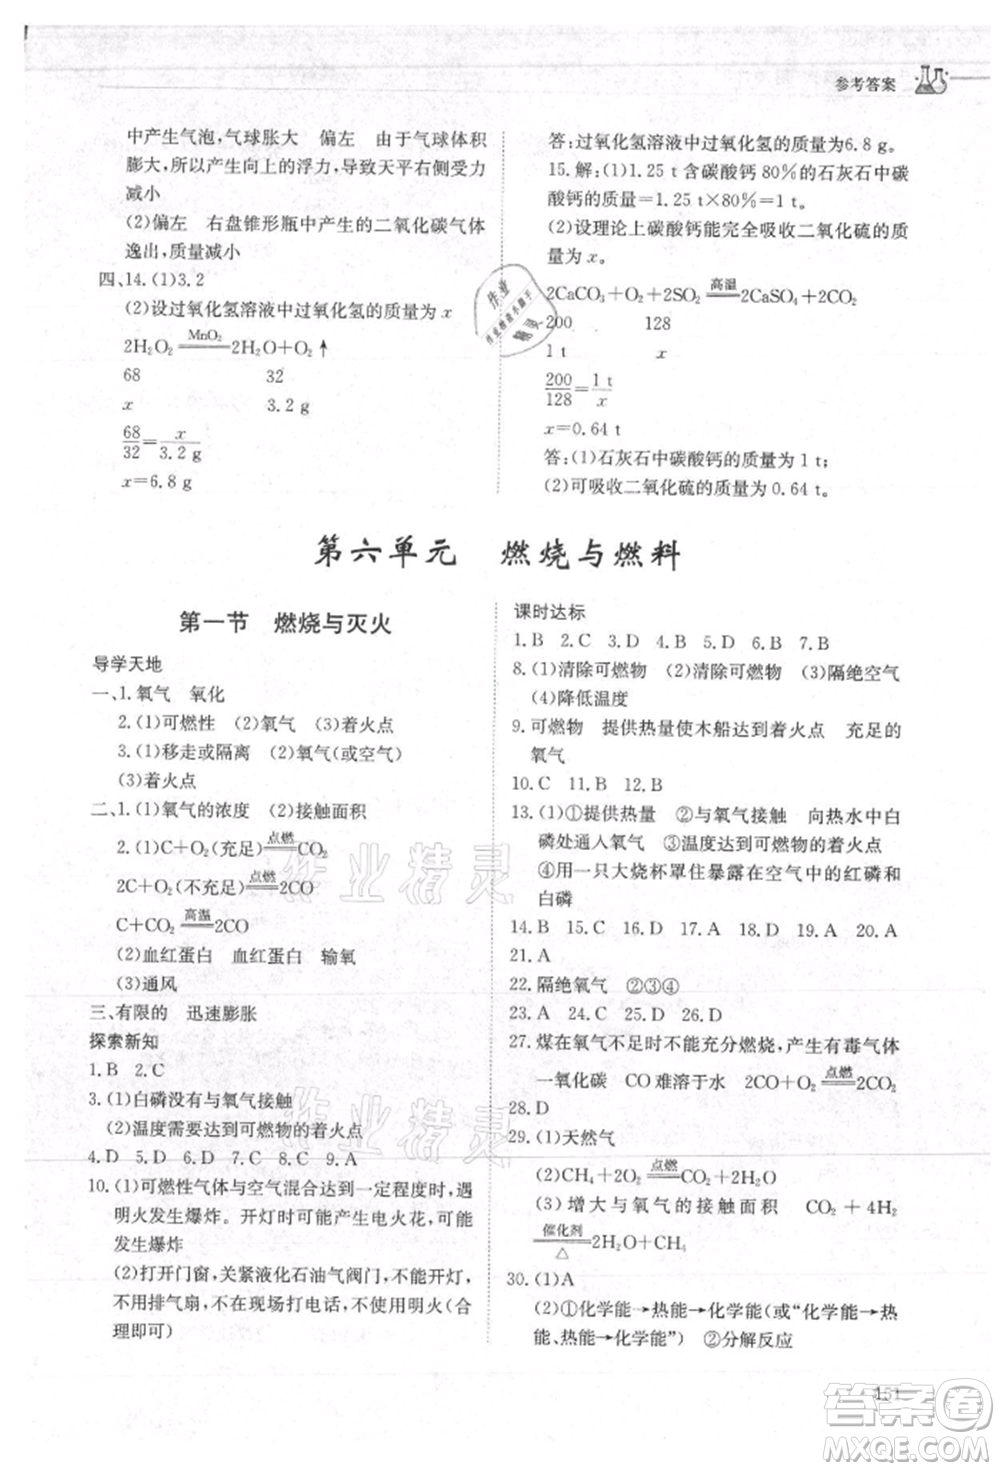 参考答案
中产生气泡,气球胀大　偏左　由于气球体积
膨大,所以产生向上的浮力,导致天平右侧质量
减小
(2)偏左　右盘锥形瓶中产生的二氧化碳气体
逸出,质量减小
四、14.(1)3.2
(2)设过氧化氢溶液中过氧化氢的质量为 x
2H₂O₂ =MnO₂= 2H₂O+O₂↑
68　32
x　3.2 g
68/32=x/3.2 g
x=6.8 g
答:过氧化氢溶液中过氧化氢的质量为6.8 g。
15.解:(1)1.25 t含碳酸钙80%的石灰石中碳
酸钙的质量为:1.25 t×80%=1 t。
(2)设理论上碳酸钙能完全吸收二氧化硫的质
量为 x。
2CaCO₃+O₂+2SO₂ =高温= 2CaSO₄+2CO₂
200　128
1 t　x
200/128=1 t/x
x=0.64 t
答:(1)石灰石中碳酸钙的质量为1 t;
(2)可吸收二氧化硫的质量为0.64 t。
第六单元　燃烧与燃料
第一节　燃烧与灭火
导学天地
一、1.氧气　氧化
2.(1)可燃性　(2)氧气　(3)着火点
3.(1)移走或隔离　(2)氧气(或空气)
(3)着火点
二、1.(1)氧气的浓度　(2)接触面积
2.(1)C+O₂(充足) =点燃= CO₂
2C+O₂(不充足) =点燃= 2CO
C+CO₂ =高温= 2CO
(2)血红蛋白　血红蛋白　输氧
(3)通风
三、有限的　迅速膨胀
探索新知
1.B　2.C
3.(1)白磷没有与氧气接触
(2)温度需要达到可燃物的着火点
4.D　5.D　6.D　7.B　8.D　9.A
10.(1)可燃性气体与空气混合达到一定程度时,遇
明火发生爆炸。开灯时可能产生电火花,可能
发生爆炸
(2)打开门窗,关紧液化石油气阀门,不能开灯,
不能开排气扇,不在现场打电话,不能用明火(合
理即可)
课时达标
1.B　2.C　3.D　4.B　5.D　6.B　7.B
8.(1)清除可燃物　(2)清除可燃物　(3)隔绝空气
(4)降低温度
9.可燃物　提供热量使木船达到着火点　充足的
氧气
10.C　11.B　12.B
13.(1)①提供热量　②与氧气接触　向热水中白
磷处通入氧气　③温度达到可燃物的着火点
④用一只大烧杯罩住暴露在空气中的红磷和
白磷
14.B　15.C　16.D　17.D　18.D　19.A　20.A
21.A
22.隔绝氧气　②③④
23.A　24.C　25.D　26.D
27.煤在氧气不足时不能充分燃烧,产生有毒气体
一氧化碳　CO难溶于水　2CO+O₂ =点燃= 2CO₂
28.D
29.(1)天然气
(2)CH₄+2O₂ =点燃= CO₂+2H₂O
(3)增大与氧气的接触面积　CO₂+4H₂
=催化剂/△= 2H₂O+CH₄
30.(1)A
(2)①化学能→热能→化学能(或“化学能→热
能、热能→化学能”)　②分解反应
151
作业精灵
作业精灵
作业精灵
答案圈
MXQE.COM